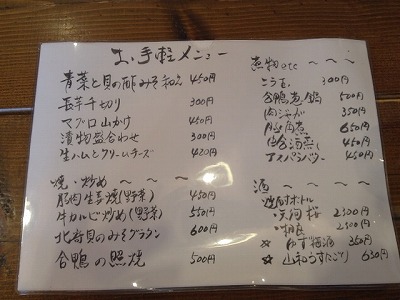 お手軽メニュー
青菜と貝の酢みそ和え 450円
長芋千切り 300円
マグロ山かけ 450円
漬物盛合わせ 300円
生ハムとクリームチーズ 420円
焼・炒め 〜 〜 〜 〜
豚肉生姜焼(野菜) 450円
牛カルビ炒め(野菜) 550円
北寄貝のみそグラタン 600円
合鴨の照焼 500円
煮物etc 〜 〜 〜
300円
合鴨煮 鍋 500円
肉じゃが 350円
豚角煮 650円
酒蒸し 450円
アスパラバター 450円
酒 〜 〜 〜 〜
焼酎ボトル
・天河桜 2500円
2500円
☆ ゆず梅酒 360円
☆ 山和うすにごり 630円